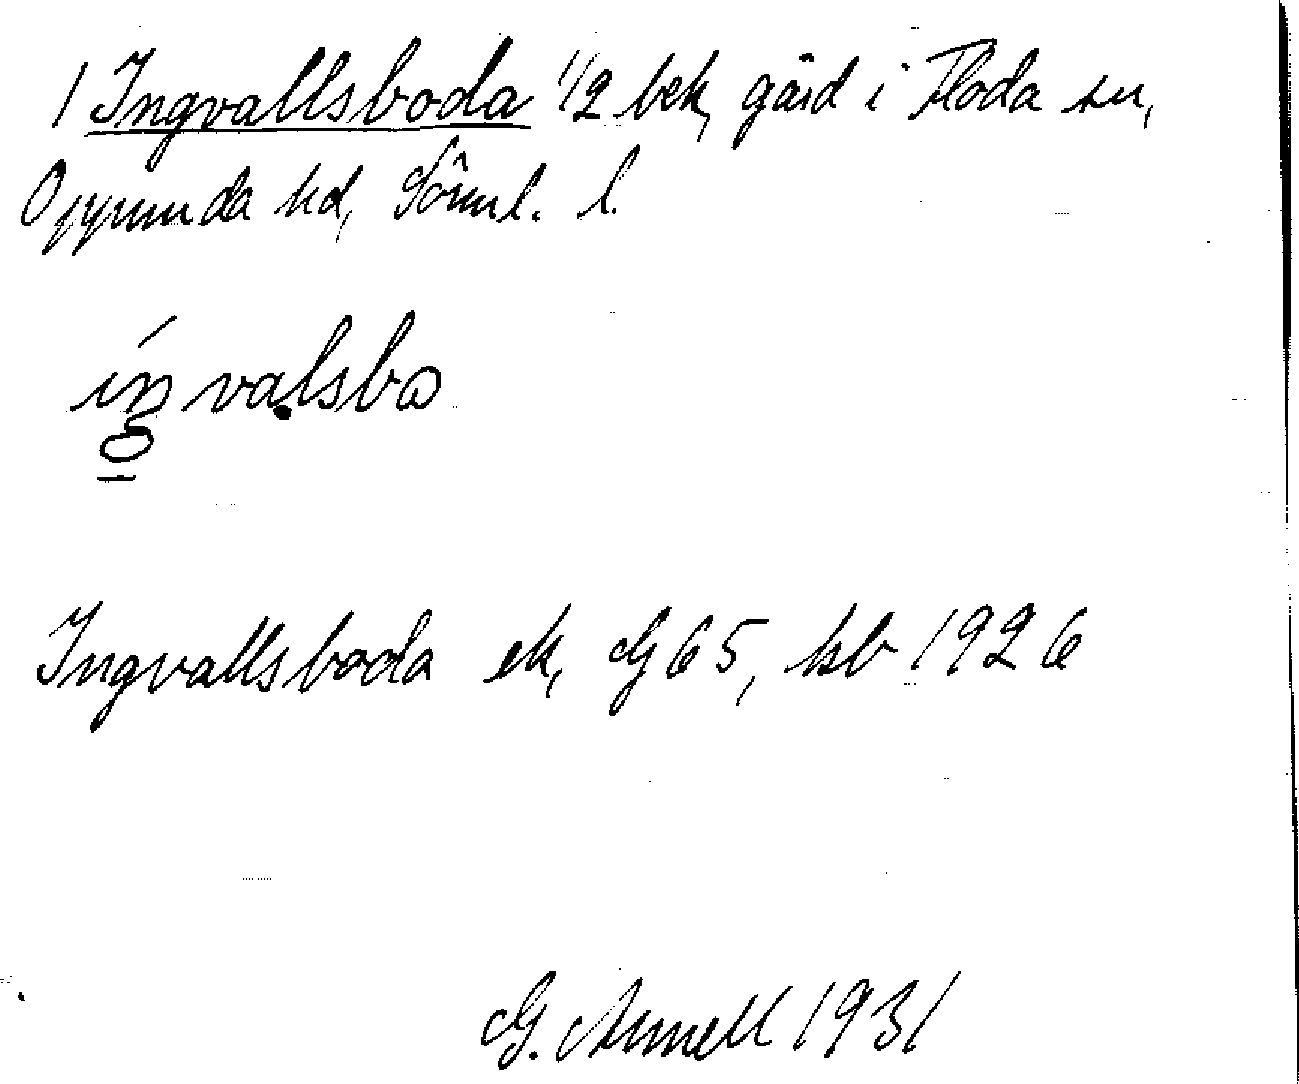 1 Ingvallsboda 1/2 bek, gård i Floda sn,
Oppunda hd, Söml. l.
íŋvalsbo
Ingvallsboda ek, G 65, hsb 1926
G. Annell 1931